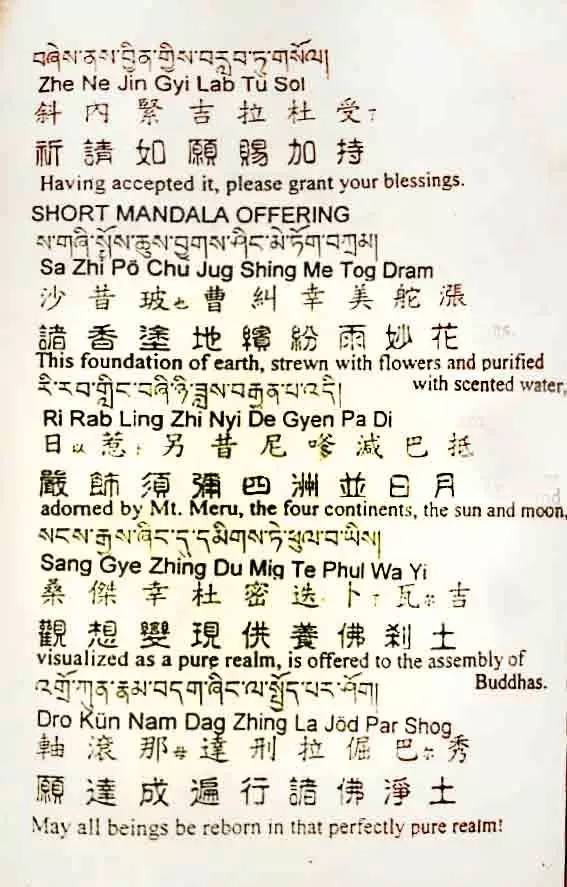 བཞེས་ནས་བྱིན་གྱིས་བརླབ་ཏུ་གསོལ།
Zhe Ne Jin Gyi Lab Tu Sol
斜 內 緊 吉 拉 杜 受
祈 請 如 願 賜 加 持
Having accepted it, please grant your blessings.
SHORT MANDALA OFFERING
ས་གཞི་སྤོས་ཆུས་བྱུགས་ཤིང་མེ་ཏོག་བཀྲམ།
Sa Zhi Pö Chu Jug Shing Me Tog Dram
沙 昔 玻 也 曹 糾 幸 美 舵 漲
諸 香 塗 地 繽 紛 雨 妙 花
This foundation of earth, strewn with flowers and purified
with scented water,
རི་རབ་གླིང་བཞི་ཉི་ཟླས་བརྒྱན་པ་འདི།
Ri Rab Ling Zhi Nyi De Gyen Pa Di
日 以 惹 另 昔 尼 嗲 減 巴 抵
嚴 飾 須 彌 四 洲 並 日 月
adorned by Mt. Meru, the four continents, the sun and moon,
སངས་རྒྱས་ཞིང་དུ་དམིགས་ཏེ་ཕུལ་བ་ཡིས།
Sang Gye Zhing Du Mig Te Phul Wa Yi
桑 傑 幸 杜 密 迭 卜 瓦 吉
觀 想 變 現 供 養 佛 剎 土
visualized as a pure realm, is offered to the assembly of
Buddhas.
འགྲོ་ཀུན་རྣམ་བདག་ཞིང་ལ་སྤྱོད་པར་ཤོག།
Dro Kün Nam Dag Zhing La Jöd Par Shog
軸 滾 那 母 達 刑 拉 倔 巴 秀
願 達 成 遍 行 諸 佛 淨 土
May all beings be reborn in that perfectly pure realm!